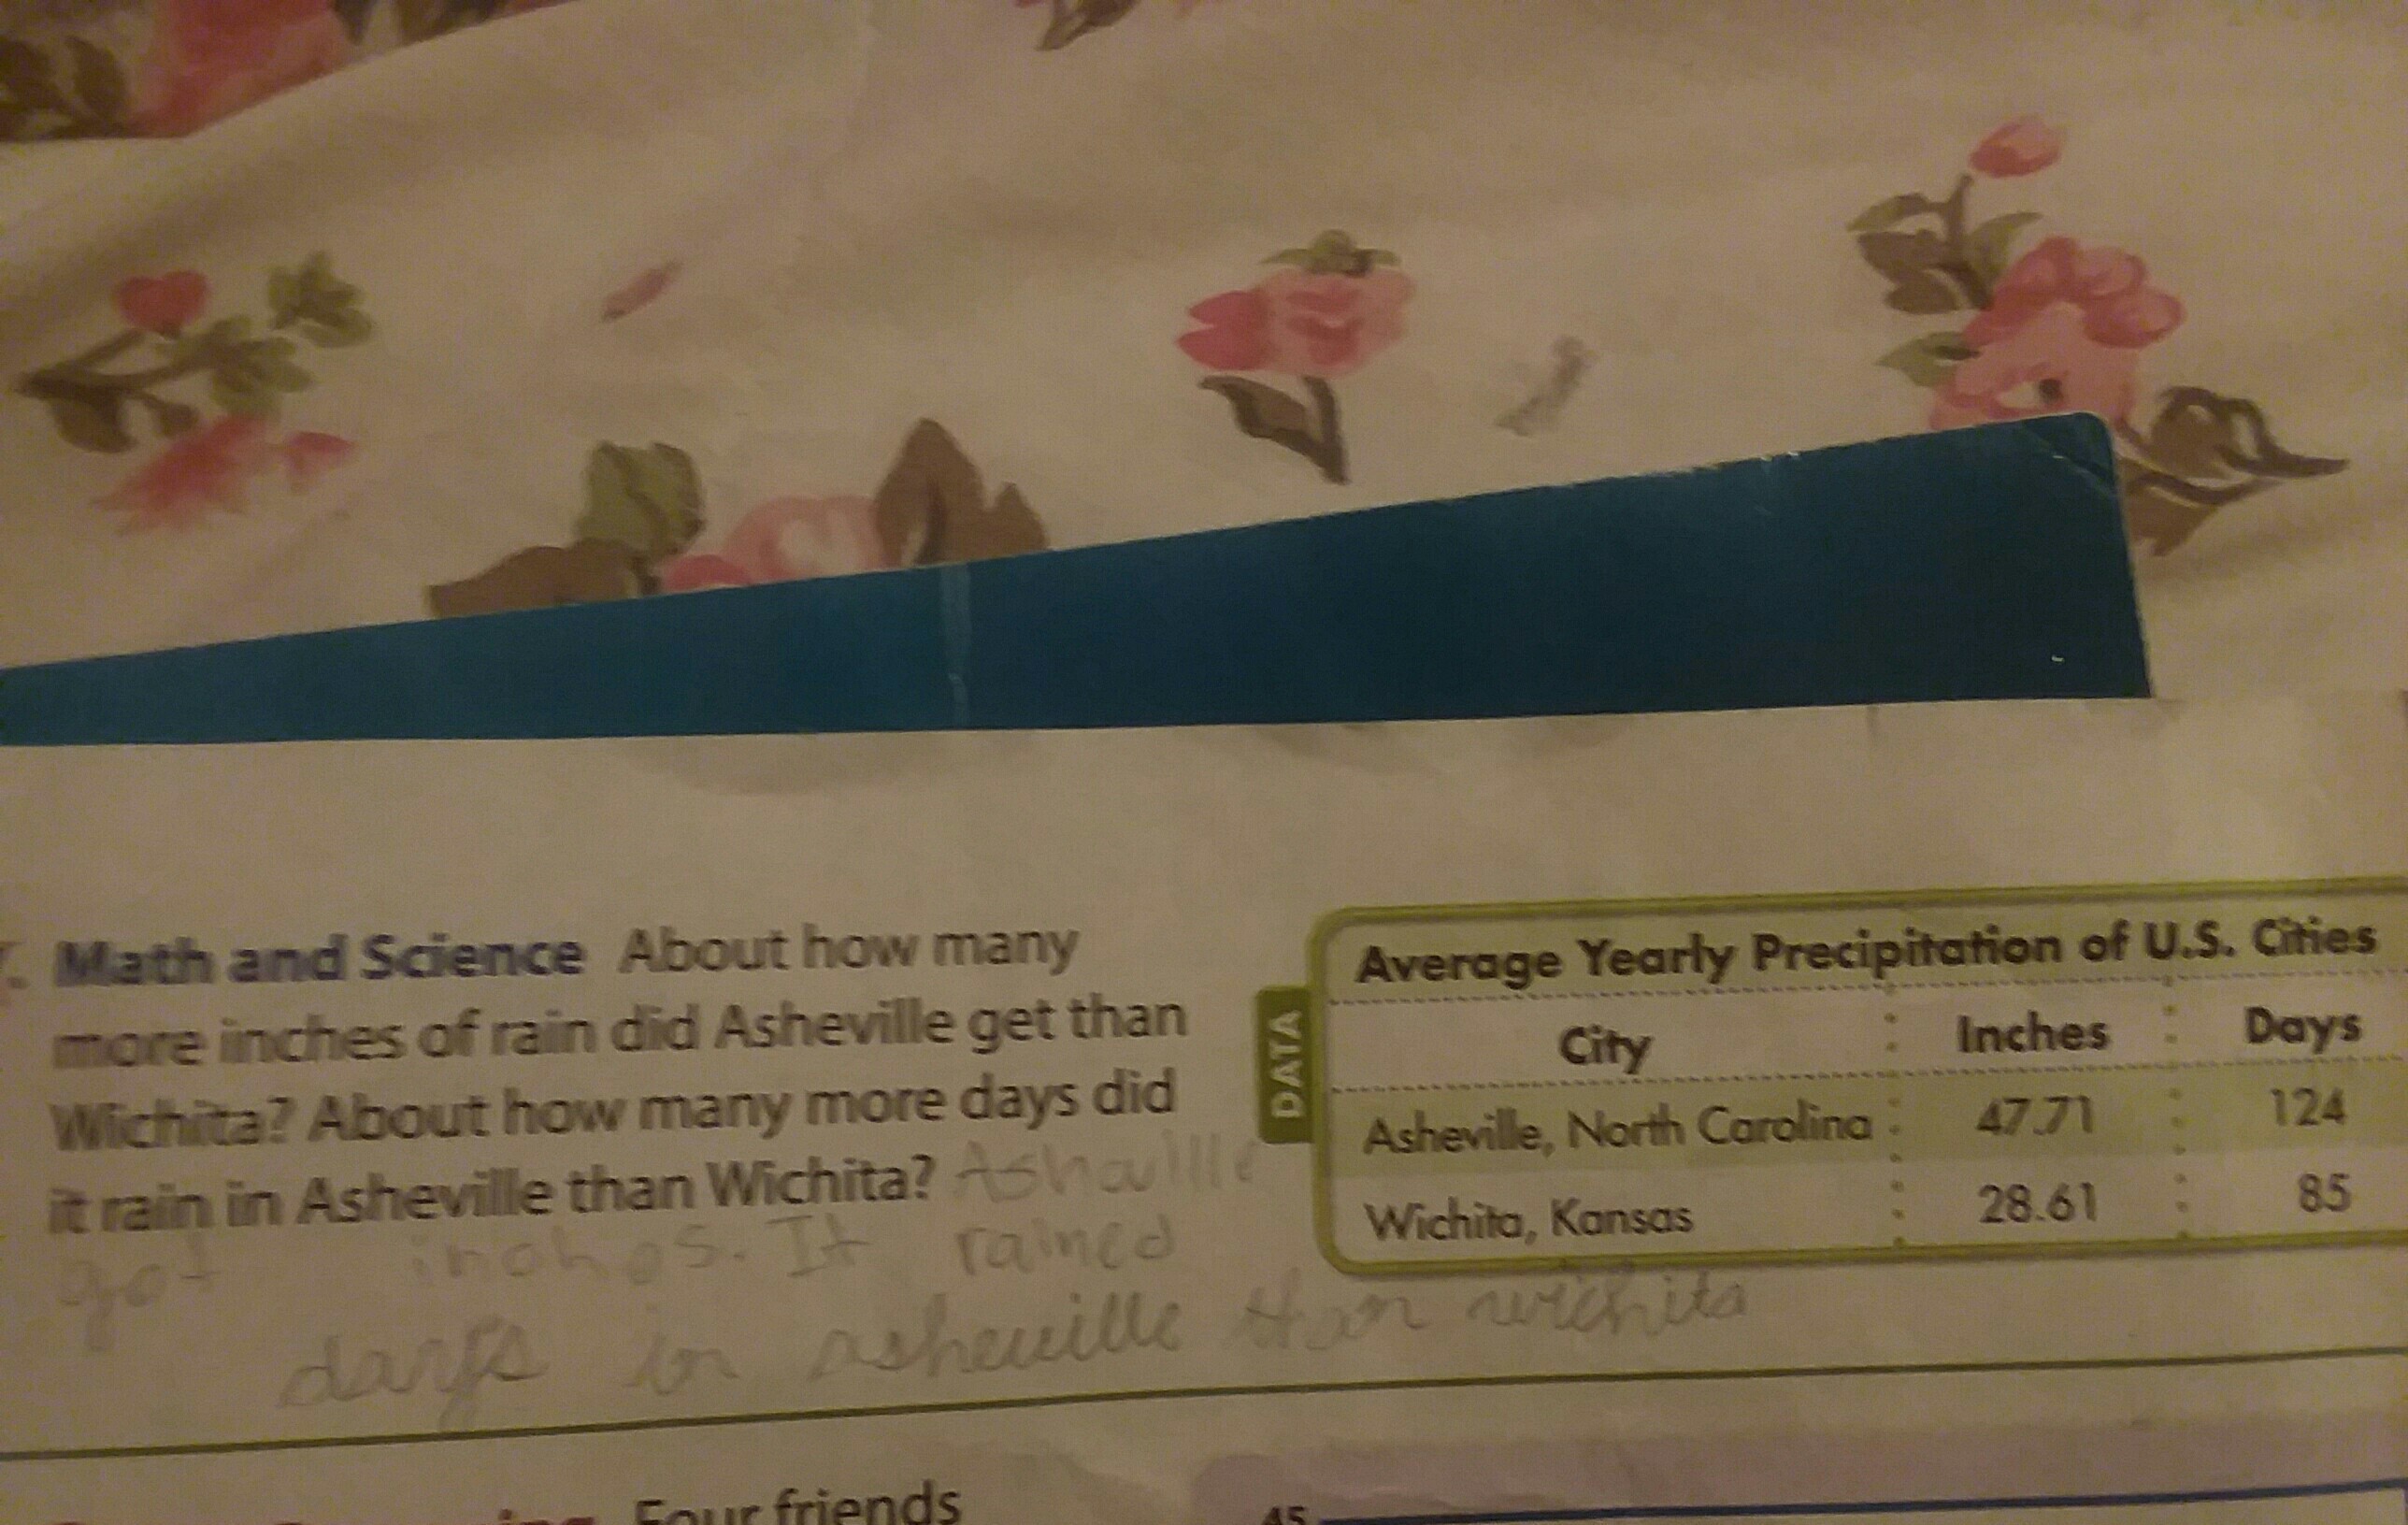 Math and Science About how many
more inches of rain did Asheville get than
Wichita? About how many more days did
it rain in Asheville than Wichita? Ashaville
got inches. It rained
days in asheville than wichita
DATA
Average Yearly Precipitation of U.S. Cities
City Inches Days
Asheville, North Carolina 47.71 124
Wichita, Kansas 28.61 85
Four friends
45